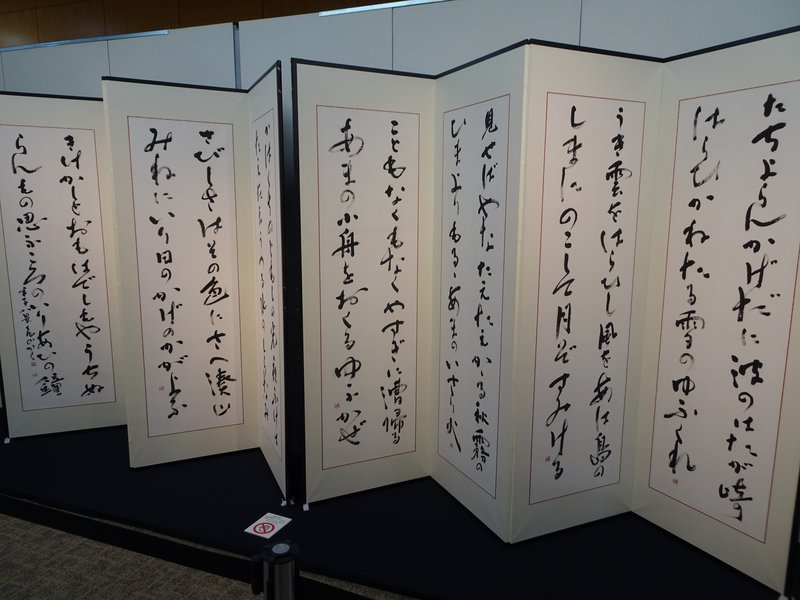 たちよらんかげだに波のはたが崎
はらひかねたる雪のゆふぐれ
うき雲をはらひし風をあは島の
しまにのこして月ぞすみける
見せばやなたえだえかかる秋霧の
ひまよりもるゝあまのいさり火
漕帰る
あまの小舟をおくるゆふかぜ
さびしさはその色にさへ湊山
みねにいり日のかげのかがよふ
きけかしとおもはでしもやうちぬ
らんもの思ふころのいりあひの鐘